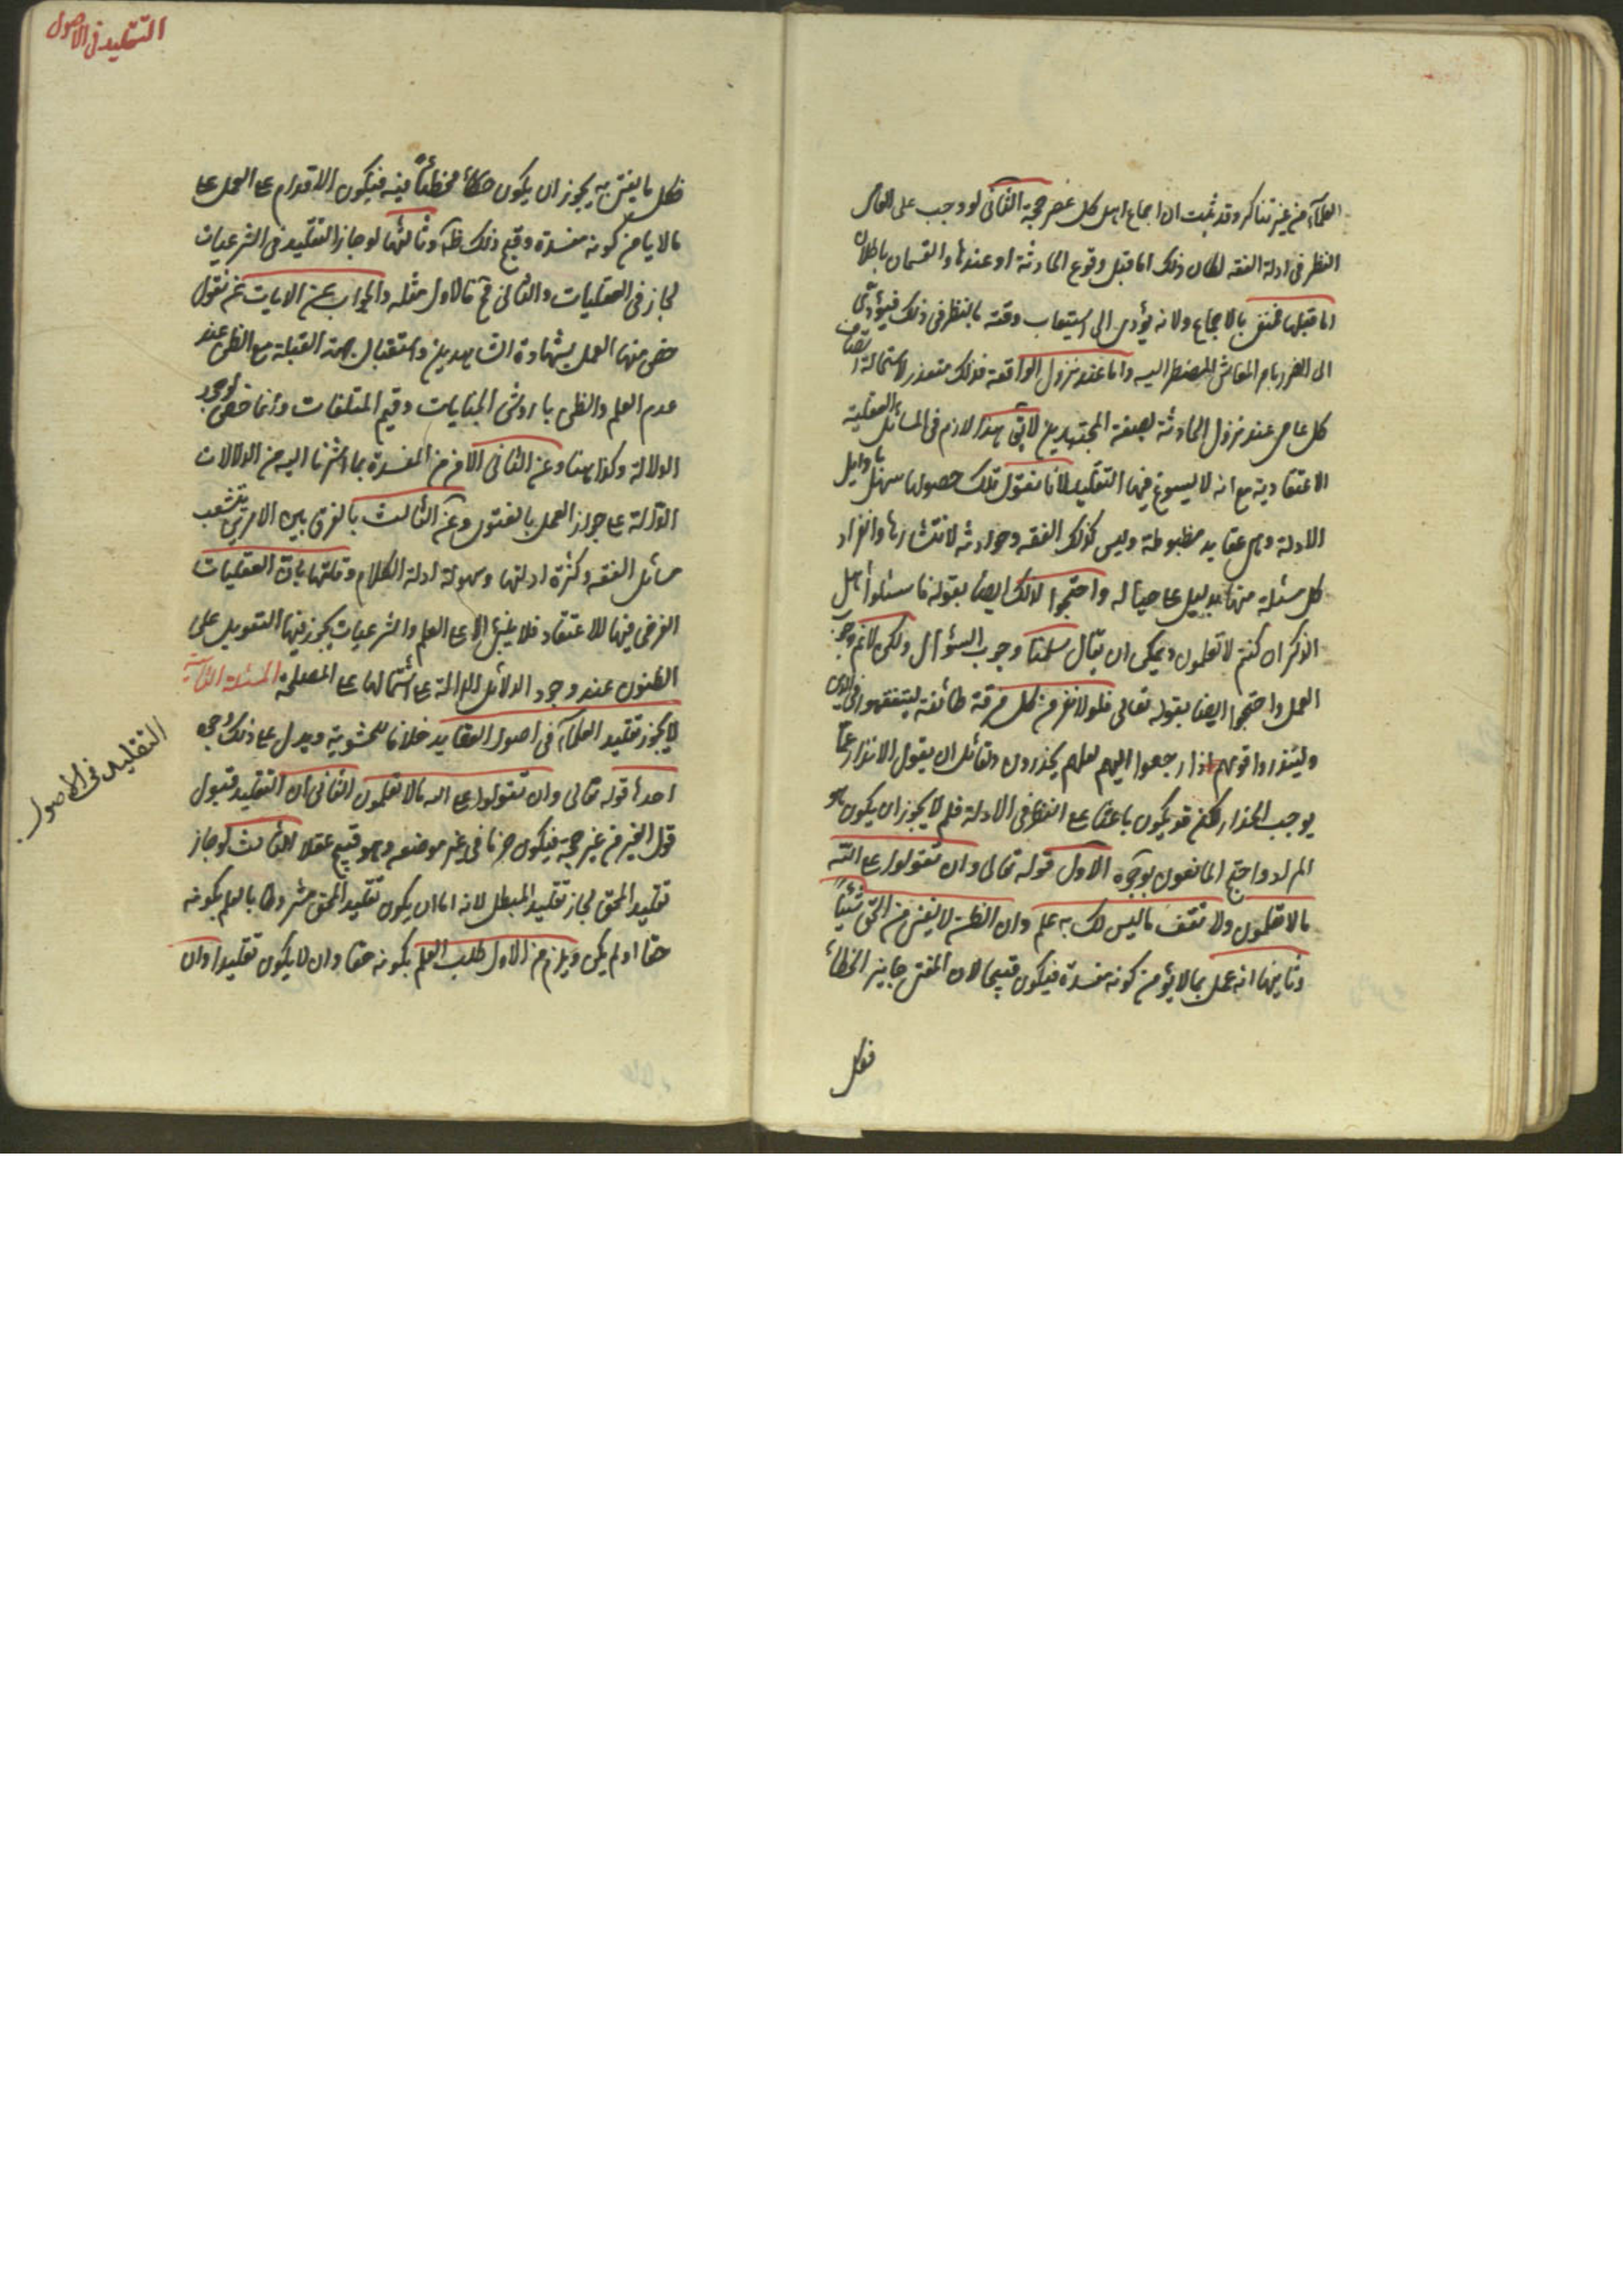 العلمآء من غير تناكر وقد ثبت ان اجماع اهل كل عصر حجة الثانى لو وجب على العامى
النظر فى ادلة الفقه لكان ذلك اما قبل وقوع الحادثة او عندها والقسمان باطلان
اما قبلها فمنفى بالاجماع ولانه يؤدى الى استيعاب وقته بالنظر فى ذلك فيؤدّى
الى الضرر بامر المعاش المضطر اليه واما عند نزول الواقعة فذلك متعذر لاستحالة اتصاف
كل عامى عند نزول الحادثة بصفة المجتهدين لا يق هذا لازم فى المسائل العقلية
الاعتقادية مع انه لا يسوغ فيها التقليد لانا نقول تلك حصولها سهل باوايل
الادلة وهى عقايد مظبوطة وليس كذلك الفقه وحوادثه لانتشارها وانفراد
كل مسئلة منها بدليل على حياله واحتجوا لذلك ايضا بقوله فاسئلوا اهل
الذكر ان كنتم لا تعلمون ويمكن ان يقال سلمنا وجوب السؤال ولكن لانم وجوب
العمل واحتجوا ايضا بقوله تعالى فلولا نفر من كل فرقة طائفة ليتفقهوا فى الدين
ولينذروا قومهم اذا رجعوا اليهم لعلهم يحذرون ولقائل ان يقول الانذار
يوجب الحذار لكنه قد يكون باعثا على النظر فى الادلة فلم لا يجوز ان يكون هو
المراد واحتج المانعون بوجوه الاول قوله تعالى وان تقولوا على الله
مالا تعلمون ولا تقف ماليس لك به علم وان الظن لا يغنى من الحق شيئاً
وثانيها انه عمل بما لا يؤمن كونه مفسدة فيكون قبيحا لان المفتى جايز الخطأ
فكل
التقليد فى الاصول
فكل ما يفتى به يجوز ان يكون مخطئاً فيه فيكون الاقدام على العمل على
مالا يامن كونه مفسدة وقبح ذلك ظ وثالثها لو جاز التقليد فى الشرعيات
لجاز فى العقليات والثانى مح فالاول مثله والجواب عن الايات نم نقول
خص منها العمل بشهادة الشاهدين واستقبال جهة القبلة مع الظن عند
عدم العلم والظن باروش الجنايات وقيم المتلفات وانما خص لوجود
الدلالة وكذا هنا وعن الثانى الامن من المفسدة بما اشرنا اليه من الدلالات
الدالة على جواز العمل بالفتوى وعن الثالث بالفرق بين الامرين بتشعب
مسائل الفقه وكثرة ادلتها وسهولة ادلة الكلام وقلتها بان العقليات
الفرض فيها الاعتقاد فلا يبنى الا على العلم والشرعيات يجوز فيها التعويل على
الظنون عند وجود الدلائل الدالة على اشتمالها على المصلحة المسئلة الثانية
لا يجوز تقليد العلمآء فى اصول العقايد خلافا للحشوية ويدل على ذلك وجوه
احدها قوله تعالى وان تقولوا على الله مالا تعلمون الثانى ان التقليد قبول
قول الغير من غير حجة فيكون جزما فى غير موضعه وهو قبيح عقلا الثالث لو جاز
تقليد المحق لجاز تقليد المبطل لانه اما ان يكون تقليد المحق مشروطا بالعلم بكونه
حقا او لم يكن ويلزم من الاول طلب العلم بكونه حقا وان لا يكون تقليدا وان
التقليد فى الاصول